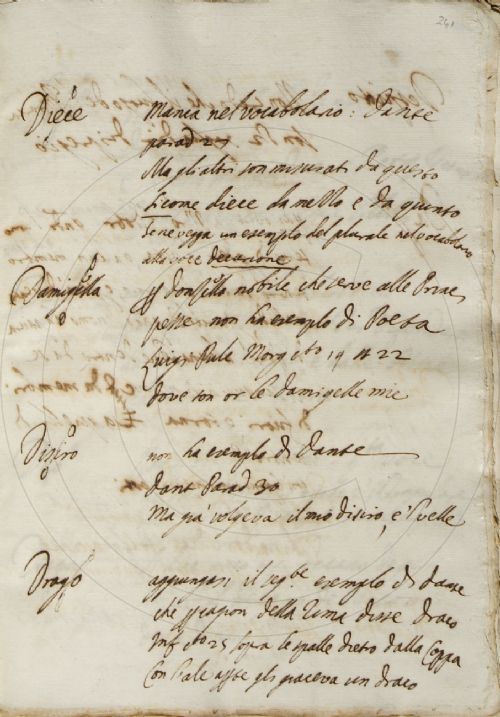 241
Diece
Manca nel vocabolario: Dante
parad 27
Ma gli altri son misurati da questo
sicome diece da mezzo e da quinto
se ne vegga un esempio del plurale nel vocabolario
alla voce decurione
Damigella
donzella nobile che serve alle Prin
pesse non ha esempio di Poeta
Luigi Pulc Morg cto 19 st 22
dove son or le damigelle mie
Disiro
non ha esempio di Dante
Dant Parad 30
Ma già volgeva il mio disiro, e 'l velle
Drago
aggiungasi il segte esempio di Dante
che cagion della rima disse draco
Inf cto 25 sopra le spalle dietro dalla coppa
Con l'ale gli giaceva un draco